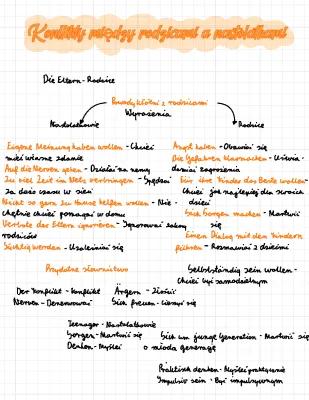 Konflikty między rodzicami a nastolatkami
Die Eltern - Rodzice
Powody kłótni z rodzicami
Wyrażenia
Nastolatkowie
Rodzice
Eigene Meinung haben wollen - Chcieć
mieć własne zdanie
Auf die Nerven gehen - Działać na nerwy
Zu viel Zeit im Netz verbringen - Spędzać
za dużo czasu w sieci
Nicht so gern zu Hause helfen wollen - Nie
chętnie chcieć pomagać w domu
Verbote der Eltern ignorieren - Ignorować zakazy
rodziców
Süchtig werden - Uzależnić się
Angst haben - Obawiać się
Die Gefahren klarmachen - Uświa-
damiać zagrożenia
Für ihre Kinder das Beste wollen -
Chcieć jak najlepiej dla swoich
dzieci
Sich Sorgen machen - Martwić
się
Einen Dialog mit den Kindern
führen - Rozmawiać z dziećmi
Przydatne słownictwo
Selbstständig sein wollen -
Chcieć być samodzielnym
Der Konflikt - Konflikt
Ärgern - Złościć
Nerven - Denerwować
Sich freuen - Cieszyć się
Teenager - Nastolatkowie
Sorgen - Martwić się
Sich um junge Generation - Martwić się
Denken - Myśleć
o młodą generację
Praktisch denken - Myśleć praktycznie
Impulsiv sein - Być impulsywnym